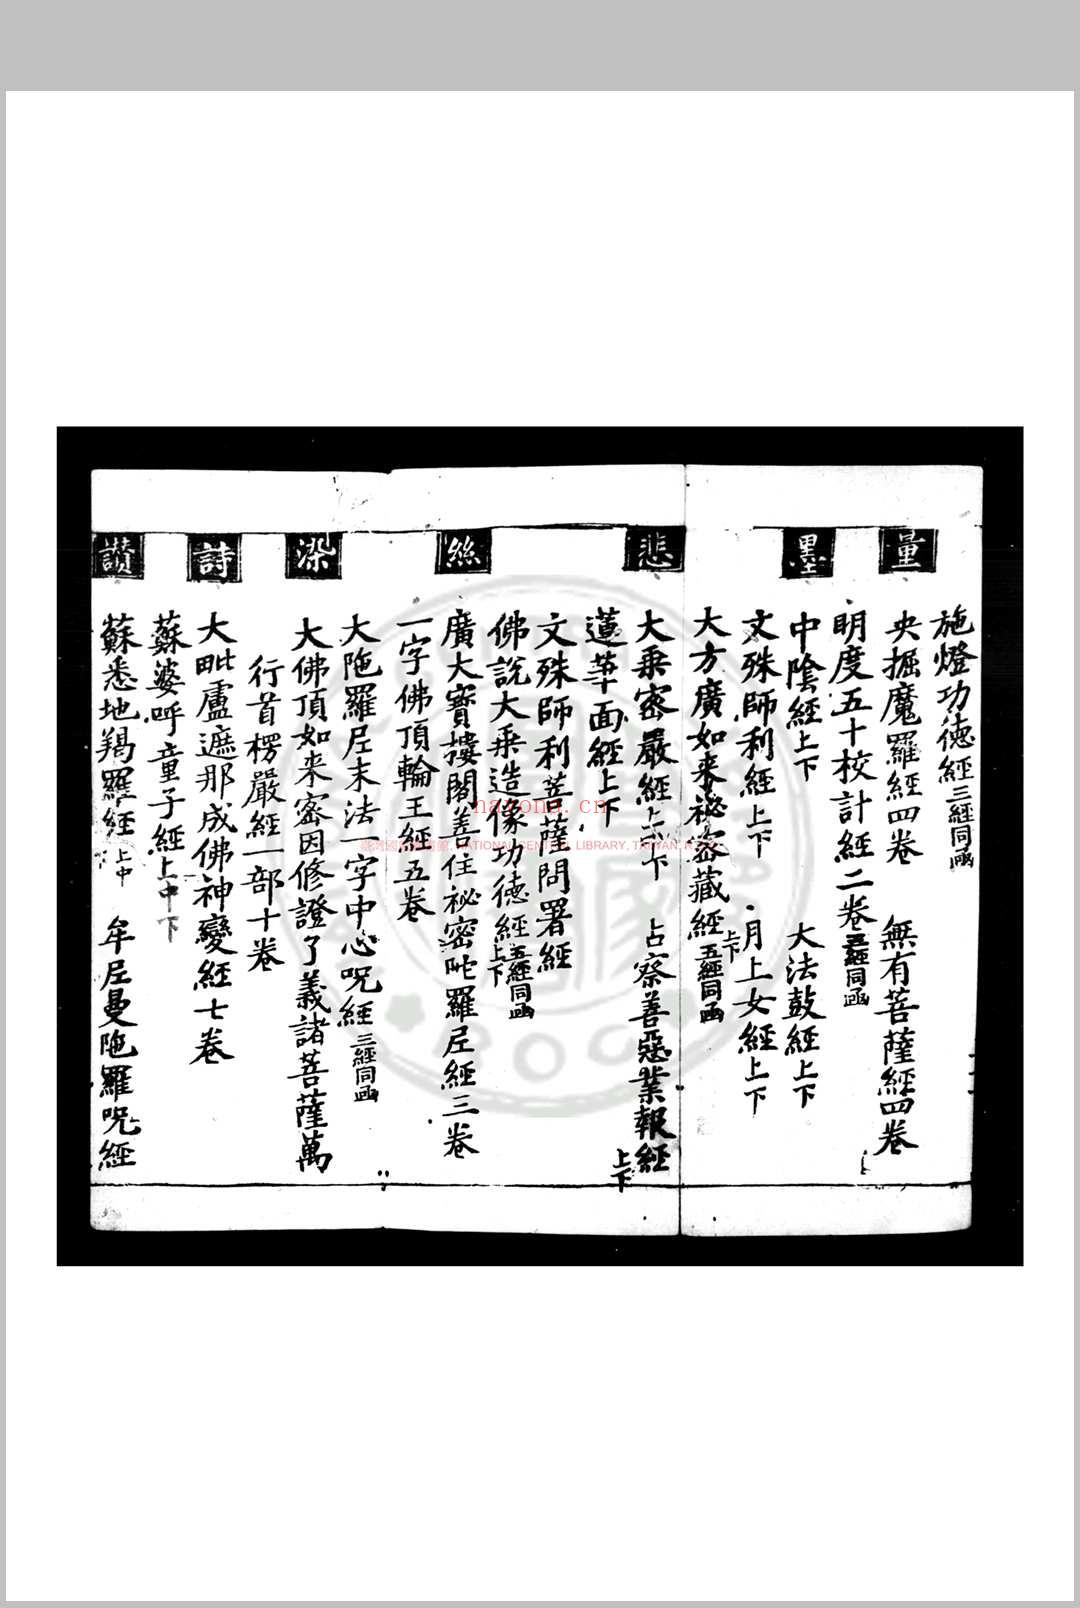 施燈功德經三經同函
量
央掘魔羅經四卷 無有菩薩經四卷
明度五十校計經二卷五經同函
墨
中陰經上下 大法鼓經上下
文殊師利經上下 月上女經上下
大方廣如来祕密藏經上下五經同函
悲
大乗密嚴經上下 占察善惡業報經上下
蓮華面經上下
文殊師利菩薩問署經
佛說大乗造像功德經上下五經同函
絲
廣大寶樓閣善住祕密陀羅尼經三卷
一字佛頂輪王經五卷
大陁羅尼末法一字中心呪經三經同函
染
大佛頂如来密因修證了義諸菩薩萬
行首楞嚴經一部十卷
詩
大毗盧遮那成佛神變經七卷
蘇婆呼童子經上中下
讃
蘇悉地羯羅經上中下 牟尼曼陁羅呪經
nazona.cn
臺灣國家圖書館, NATIONAL CENTRAL LIBRARY, TAIWAN, R.O.C